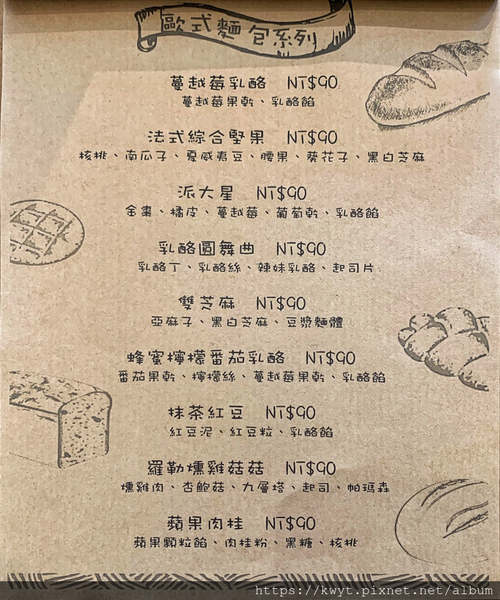 歐式麵包系列
蔓越莓乳酪 NT$90
蔓越莓果乾、乳酪餡
法式綜合堅果 NT$90
核桃、南瓜子、夏威夷豆、腰果、葵花子、黑白芝麻
派大星 NT$90
金棗、橘皮、蔓越莓、葡萄乾、乳酪餡
乳酪圓舞曲 NT$90
乳酪丁、乳酪絲、辣妹乳酪、起司片
雙芝麻 NT$90
亞麻子、黑白芝麻、豆漿麵體
蜂蜜檸檬番茄乳酪 NT$90
番茄果乾、檸檬絲、蔓越莓果乾、乳酪餡
抹茶紅豆 NT$90
紅豆泥、紅豆粒、乳酪餡
羅勒燻雞菇菇 NT$90
燻雞肉、杏鮑菇、九層塔、起司、帕瑪森
蘋果肉桂 NT$90
蘋果顆粒餡、肉桂粉、黑糖、核桃
https://kwyt.pixnet.net/album